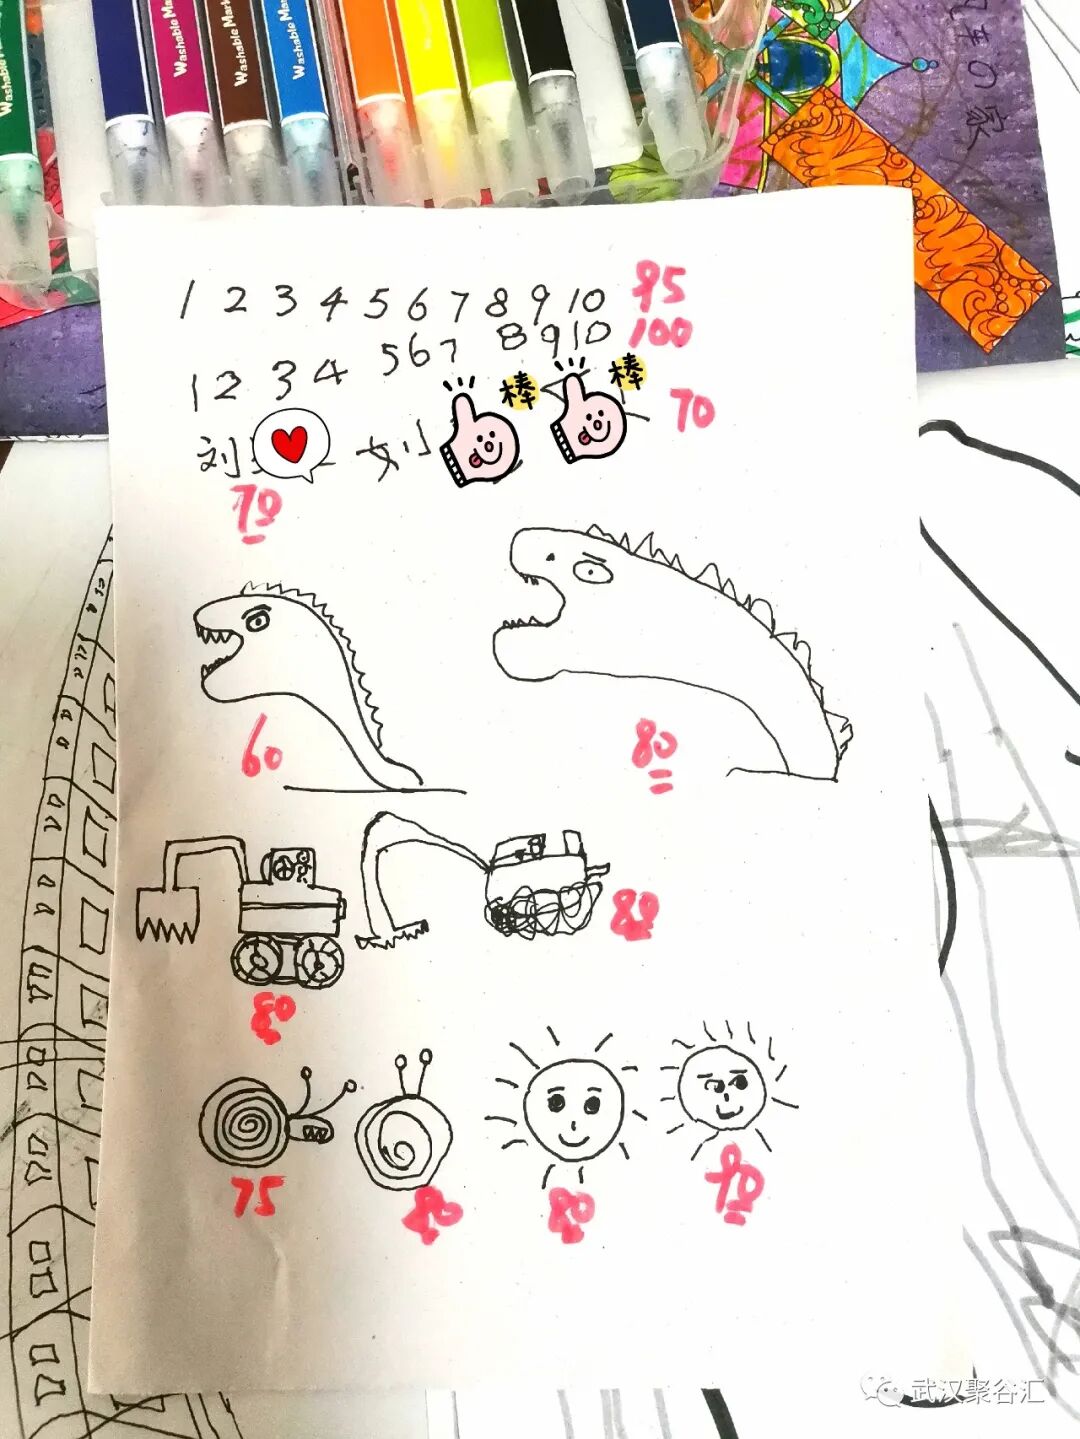 Washable
Washable Mark
Washable Mar
Washable Mark
の家
1 2 3 4 5 6 7 8 9 10 95
1 2 3 4 5 6 7 8 9 10 100
棒 棒
刘 刘 70
70
60 80
80
80
75 80 80 90
武汉聚谷汇